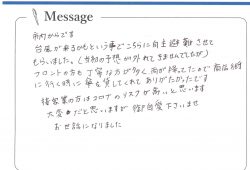 Message
市内からです
台風が来るかもという事でこちらに自主避難させて
もらいました。(当初の予想が外れてきませんでしたが)
フロントの方も丁寧な方が多く雨が降ってたので商店街
に行く時に傘を貸してくれてありがたかったです
接客業の方はコロナのリスクが高いと思います
大変だと思いますが御自愛下さいませ
お世話になりました